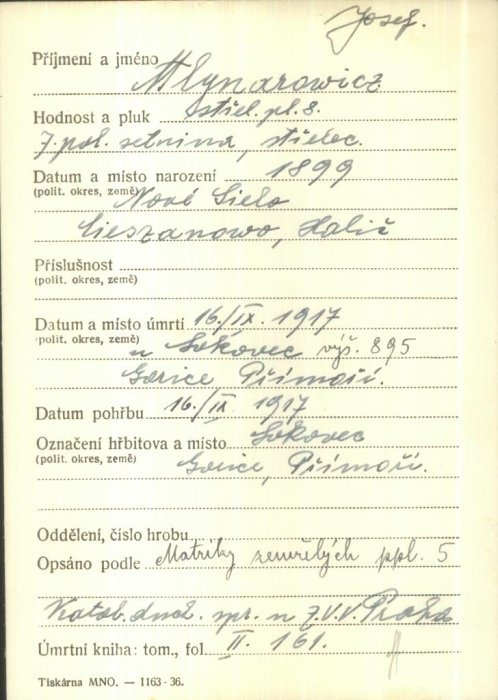 Josef.
Příjmení a jméno Mlynarowicz
Hodnost a pluk střel. pl. 8.
7. pol. setnina, střelec.
Datum a místo narození 1899
(polit. okres, země) Nové Sielo
Cieszanowo, Halič
Příslušnost
(polit. okres, země)
Datum a místo úmrtí 16./IX. 1917
polit. okres, země) u Sokovec výš. 895
Gorice Přímoří.
Datum pohřbu 16./IX 1917
Označení hřbitova a místo Sokovec
(polit. okres, země) Gorice, Přímoří.
Oddělení, číslo hrobu
Opsáno podle Matriky zemřelých ppl. 5
Katol. duch. spr. u Z.V.V. Praha
Úmrtní kniha: tom., fol. II. 161.
Tiskárna MNO. — 1163-36.